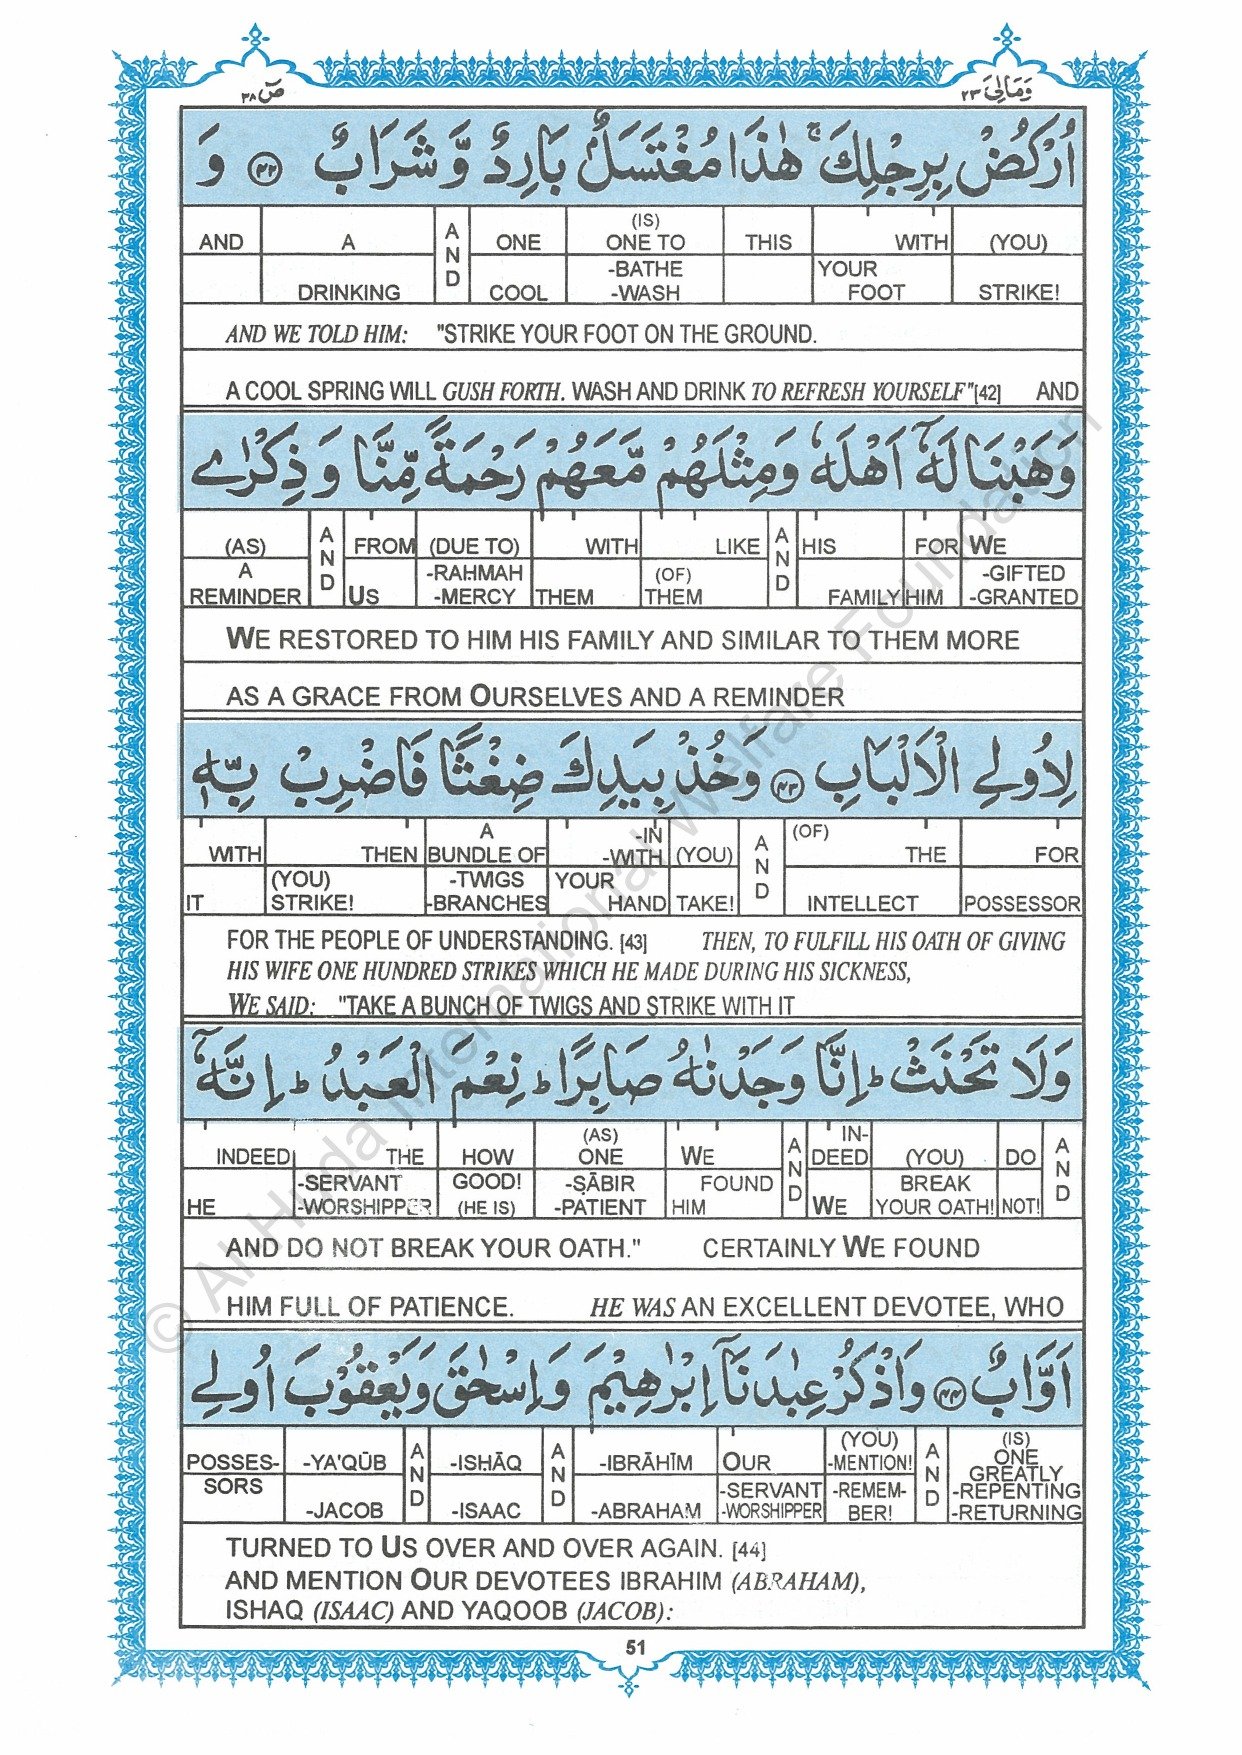 صٓ ٣٨ وَمَالِیَ ٢٣
اُرْكُضْ بِرِجْلِكَ ۚ هٰذَا مُغْتَسَلٌۢ بَارِدٌ وَّ شَرَابٌ ﴿٤٢﴾ وَ
AND A AND ONE (IS) ONE TO THIS WITH (YOU)
DRINKING COOL -BATHE -WASH YOUR FOOT STRIKE!
AND WE TOLD HIM: "STRIKE YOUR FOOT ON THE GROUND.
A COOL SPRING WILL GUSH FORTH. WASH AND DRINK TO REFRESH YOURSELF"[42] AND
وَهَبْنَا لَهٗٓ اَهْلَهٗ وَمِثْلَهُمْ مَّعَهُمْ رَحْمَةً مِّنَّا وَ ذِكْرٰى
(AS) AND FROM (DUE TO) WITH LIKE AND HIS FOR WE
A REMINDER US -RAHMAH -MERCY THEM (OF) THEM FAMILY HIM -GIFTED -GRANTED
WE RESTORED TO HIM HIS FAMILY AND SIMILAR TO THEM MORE
AS A GRACE FROM OURSELVES AND A REMINDER
لِاُولِي الْاَلْبَابِ ﴿٤٣﴾ وَخُذْ بِيَدِكَ ضِغْثًا فَاضْرِبْ بِّهٖ
WITH THEN A BUNDLE OF -IN -WITH (YOU) AND (OF) THE FOR
IT (YOU) STRIKE! -TWIGS -BRANCHES YOUR HAND TAKE! INTELLECT POSSESSOR
FOR THE PEOPLE OF UNDERSTANDING. [43] THEN, TO FULFILL HIS OATH OF GIVING
HIS WIFE ONE HUNDRED STRIKES WHICH HE MADE DURING HIS SICKNESS,
WE SAID: "TAKE A BUNCH OF TWIGS AND STRIKE WITH IT
وَلَا تَحْنَثْ ؕ اِنَّا وَجَدْنٰهُ صَابِرًا ؕ نِعْمَ الْعَبْدُ ؕ اِنَّهٗٓ
INDEED THE HOW (AS) ONE WE AND INDEED (YOU) DO AND
HE -SERVANT -WORSHIPPER GOOD! (HE IS) -ṢĀBIR -PATIENT FOUND HIM WE BREAK YOUR OATH! NOT!
AND DO NOT BREAK YOUR OATH." CERTAINLY WE FOUND
HIM FULL OF PATIENCE. HE WAS AN EXCELLENT DEVOTEE, WHO
اَوَّابٌ ﴿٤٤﴾ وَاذْكُرْ عِبٰدَنَآ اِبْرٰهِيْمَ وَاِسْحٰقَ وَيَعْقُوْبَ اُولِي
POSSES- -YA'QŪB AND -ISḤĀQ AND -IBRĀHĪM OUR (YOU) -MENTION! AND (IS) ONE GREATLY
SORS -JACOB -ISAAC -ABRAHAM -SERVANT -WORSHIPPER -REMEM-BER! -REPENTING -RETURNING
TURNED TO US OVER AND OVER AGAIN. [44]
AND MENTION OUR DEVOTEES IBRAHIM (ABRAHAM),
ISHAQ (ISAAC) AND YAQOOB (JACOB):
51
© Al Huda International Welfare Foundation